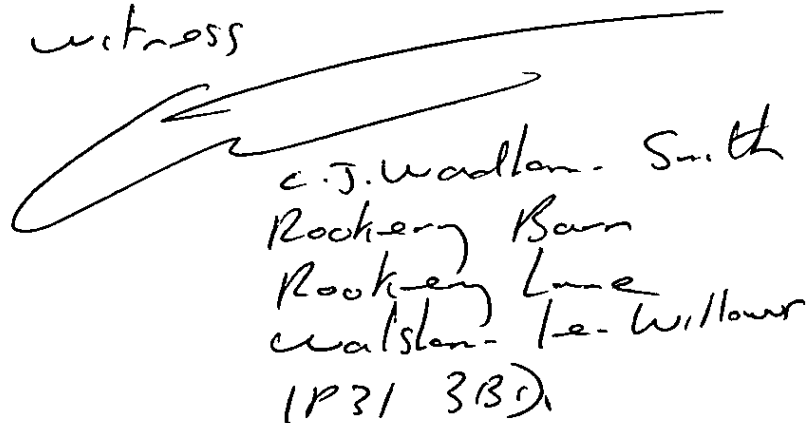 witness
C.J. Wadlam-Smith
Rookery Barn
Rookery Lane
Walsham-le-Willows
IP31 3BD.